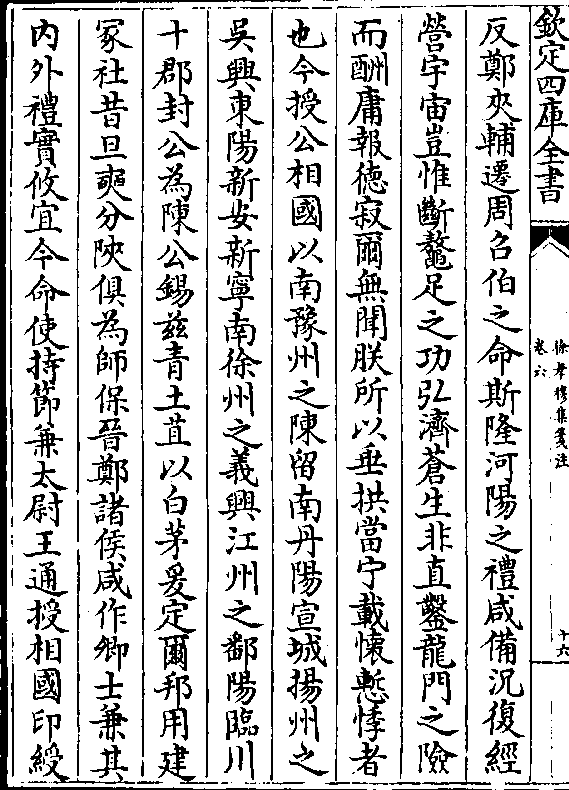 欽定四庫全書
徐孝穆集箋注
卷六
十六
反鄭夾輔遷周名伯之命斯隆河陽之禮咸備況復經
營宇宙豈惟斷鼇足之功弘濟蒼生非直鑿龍門之險
而酬庸報德寂爾無聞朕所以垂拱當宁載懷慙悸者
也今授公相國以南豫州之陳留南丹陽宣城揚州之
吳興東陽新安新寧南徐州之義興江州之鄱陽臨川
十郡封公為陳公錫兹青土苴以白茅爰定爾邦用建
冢社昔旦奭分陜俱為師保晉鄭諸侯咸作卿士兼其
内外禮實攸宜今命使持節兼太尉王通授相國印綬